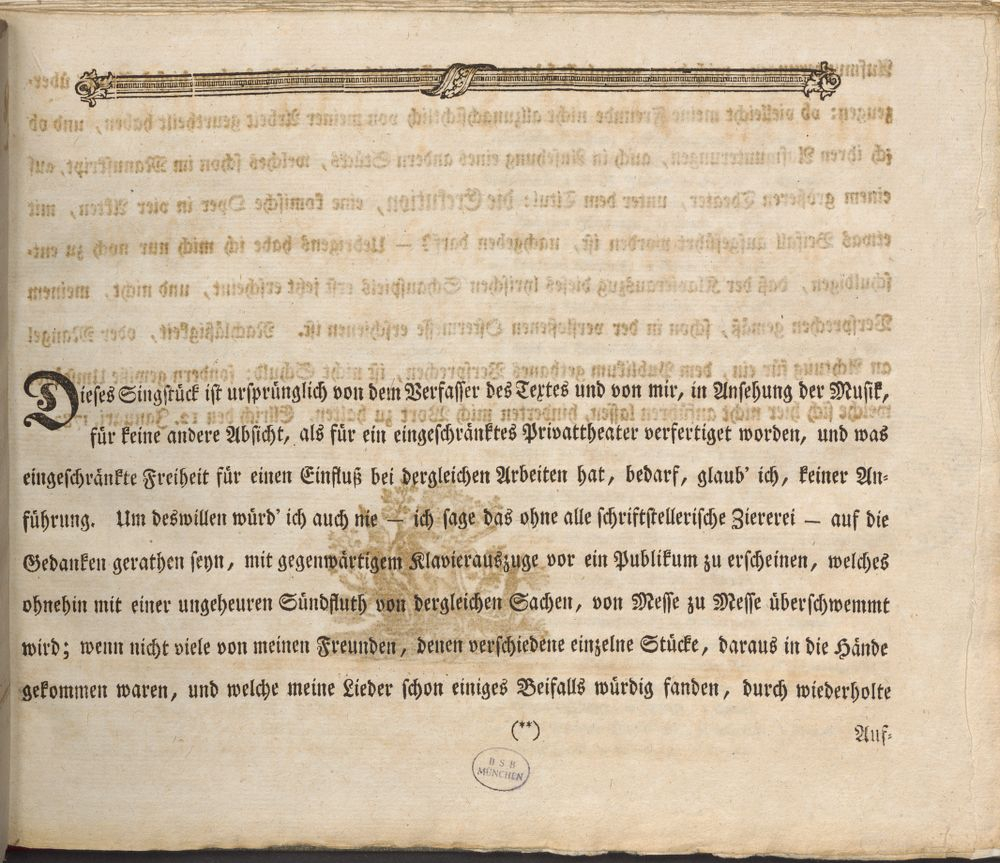 Dieses Singstück ist ursprünglich von dem Verfasser des Textes und von mir, in Ansehung der Musik,
für keine andere Absicht, als für ein eingeschränktes Privattheater verfertiget worden, und was
eingeschränkte Freiheit für einen Einfluß bei dergleichen Arbeiten hat, bedarf, glaub' ich, keiner An-
führung. Um deswillen würd' ich auch nie — ich sage das ohne alle schriftstellerische Ziererei — auf die
Gedanken gerathen seyn, mit gegenwärtigem Klavierauszuge vor ein Publikum zu erscheinen, welches
ohnehin mit einer ungeheuren Sündfluth von dergleichen Sachen, von Messe zu Messe überschwemmt
wird; wenn nicht viele von meinen Freunden, denen verschiedene einzelne Stücke, daraus in die Hände
gekommen waren, und welche meine Lieder schon einiges Beifalls würdig fanden, durch wiederholte
(**)
Auf-
B S B
MÜNCHEN